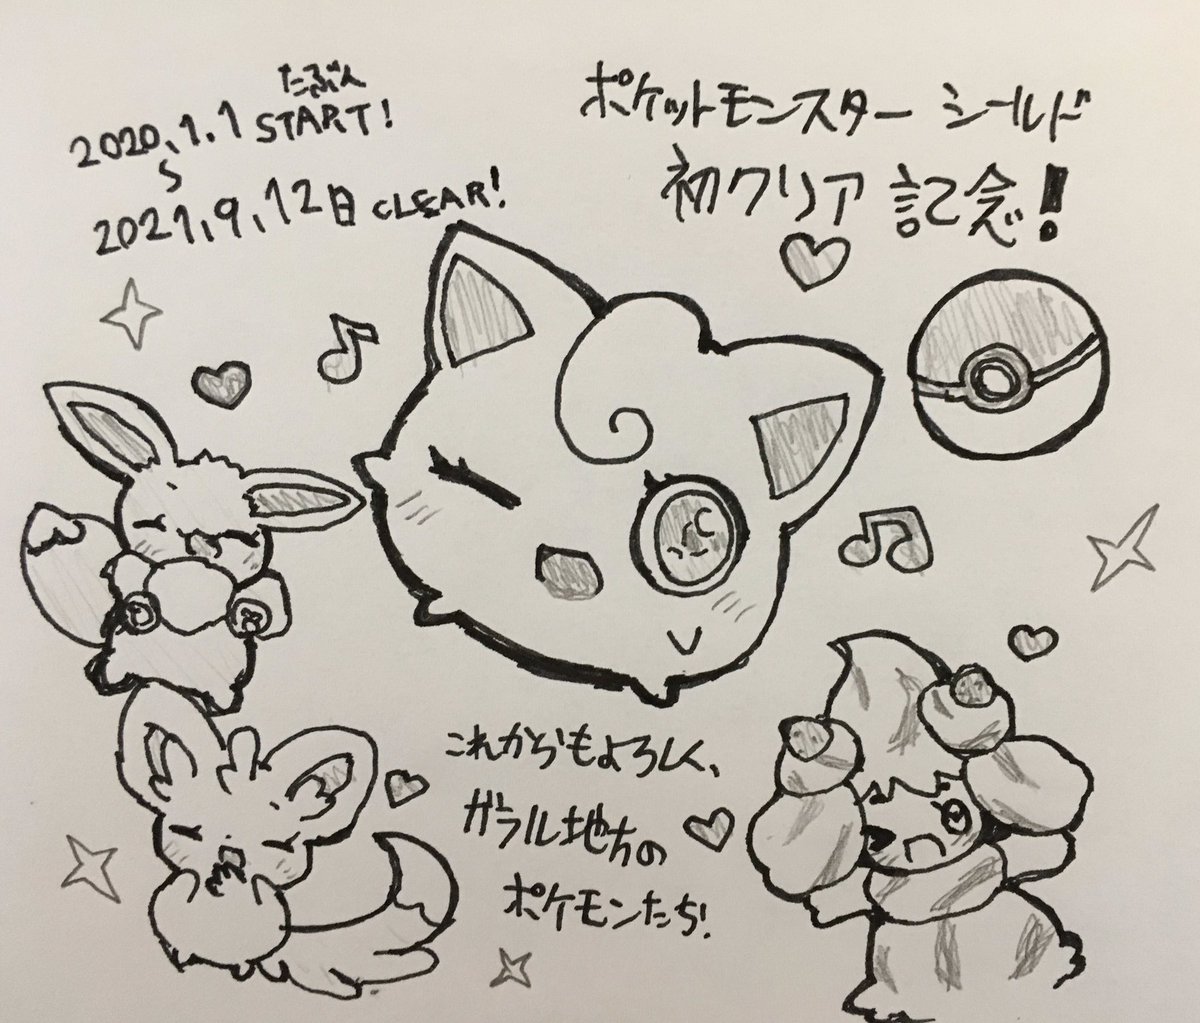 たぶん
2020.1.1 START!
〜
2021.9.12日 CLEAR!
ポケットモンスター シールド
初クリア 記念!
これからもよろしく、
ガラル地方の
ポケモンたち!